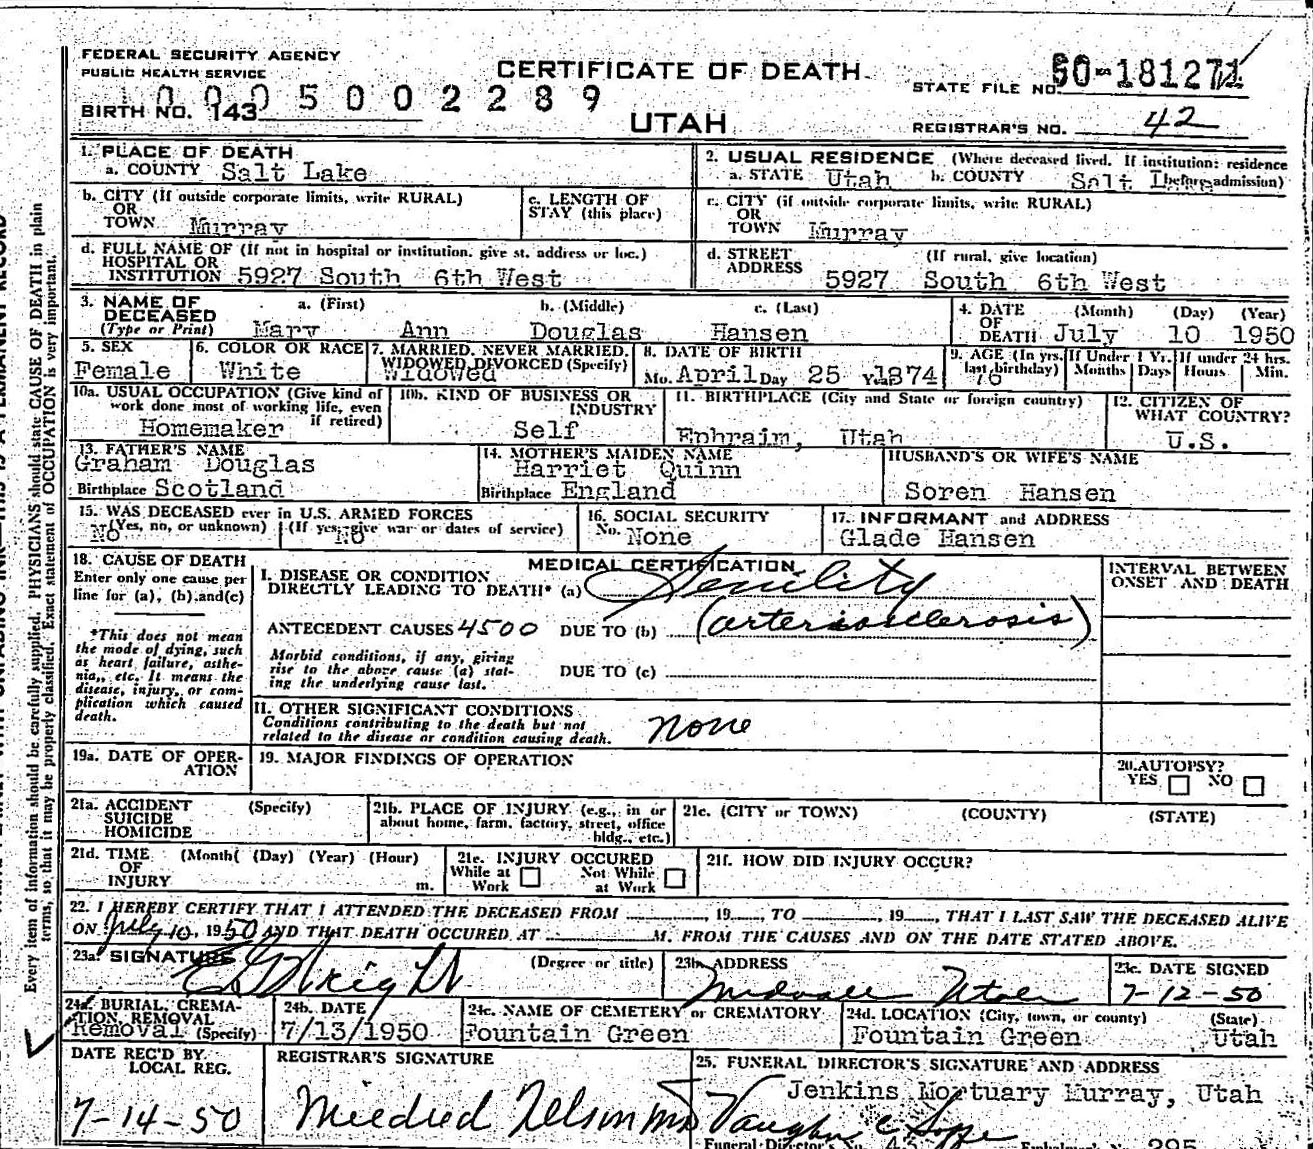 FEDERAL SECURITY AGENCY
PUBLIC HEALTH SERVICE
CERTIFICATE OF DEATH
STATE FILE NO. 50-181271
0005002289
BIRTH NO. 143
UTAH
REGISTRAR'S NO. 42
1. PLACE OF DEATH
a. COUNTY Salt Lake
2. USUAL RESIDENCE (Where deceased lived. If institution: residence before admission)
a. STATE Utah b. COUNTY Salt L
b. CITY (If outside corporate limits, write RURAL)
OR
TOWN Murray
c. LENGTH OF
STAY (this place)
c. CITY (if outside corporate limits, write RURAL)
OR
TOWN Murray
d. FULL NAME OF (If not in hospital or institution, give st. address or loc.)
HOSPITAL OR
INSTITUTION 5927 South 6th West
d. STREET (If rural, give location)
ADDRESS 5927 South 6th West
3. NAME OF a. (First) b. (Middle) c. (Last)
DECEASED
(Type or Print) Mary Ann Douglas Hansen
4. DATE (Month) (Day) (Year)
OF
DEATH July 10 1950
5. SEX
Female
6. COLOR OR RACE
White
7. MARRIED, NEVER MARRIED,
WIDOWED, DIVORCED (Specify)
Widowed
8. DATE OF BIRTH
Mo. April Day 25 Year 1874
9. AGE (In yrs. last birthday) 76
If Under 1 Yr. Months Days
If under 24 hrs. Hours Min.
10a. USUAL OCCUPATION (Give kind of
work done most of working life, even
if retired)
Homemaker
10b. KIND OF BUSINESS OR
INDUSTRY
Self
11. BIRTHPLACE (City and State or foreign country)
Ephraim, Utah
12. CITIZEN OF
WHAT COUNTRY?
U.S.
13. FATHER'S NAME
Graham Douglas
Birthplace Scotland
14. MOTHER'S MAIDEN NAME
Harriet Quinn
Birthplace England
HUSBAND'S OR WIFE'S NAME
Soren Hansen
15. WAS DECEASED ever in U.S. ARMED FORCES
(Yes, no, or unknown) (If yes, give war or dates of service)
No No
16. SOCIAL SECURITY
No. None
17. INFORMANT and ADDRESS
Glade Hansen
18. CAUSE OF DEATH
Enter only one cause per
line for (a), (b) and (c)
*This does not mean
the mode of dying, such
as heart failure, asthe-
nia, etc. It means the
disease, injury, or com-
plication which caused
death.
MEDICAL CERTIFICATION
I. DISEASE OR CONDITION
DIRECTLY LEADING TO DEATH* (a) Senility
ANTECEDENT CAUSES 4500 DUE TO (b) (arteriosclerosis)
Morbid conditions, if any, giving
rise to the above cause (a) stat-
ing the underlying cause last.
DUE TO (c)
II. OTHER SIGNIFICANT CONDITIONS
Conditions contributing to the death but not
related to the disease or condition causing death.
none
INTERVAL BETWEEN
ONSET AND DEATH
19a. DATE OF OPER-
ATION
19. MAJOR FINDINGS OF OPERATION
20. AUTOPSY?
YES NO
21a. ACCIDENT (Specify)
SUICIDE
HOMICIDE
21b. PLACE OF INJURY (e.g., in or
about home, farm, factory, street, office
bldg., etc.)
21c. (CITY or TOWN) (COUNTY) (STATE)
21d. TIME (Month( (Day) (Year) (Hour)
OF
INJURY m.
21e. INJURY OCCURED
While at Work Not While at Work
21f. HOW DID INJURY OCCUR?
22. I HEREBY CERTIFY THAT I ATTENDED THE DECEASED FROM 19 , TO 19 , THAT I LAST SAW THE DECEASED ALIVE
ON July 10, 1950 AND THAT DEATH OCCURED AT M. FROM THE CAUSES AND ON THE DATE STATED ABOVE.
23a. SIGNATURE (Degree or title)
Wright
23b. ADDRESS
Midvale Utah
23c. DATE SIGNED
7-12-50
24a. BURIAL, CREMA-
TION, REMOVAL
Removal (Specify)
24b. DATE
7/13/1950
24c. NAME OF CEMETERY or CREMATORY
Fountain Green
24d. LOCATION (City, town, or county) (State)
Fountain Green Utah
DATE REC'D BY
LOCAL REG.
7-14-50
REGISTRAR'S SIGNATURE
Mildred Nelson MD
25. FUNERAL DIRECTOR'S SIGNATURE AND ADDRESS
Jenkins Mortuary Murray, Utah
Vaughn C
Funeral Director's No. 295
Every item of information should be carefully supplied. PHYSICIANS should state CAUSE OF DEATH in plain
terms, so that it may be properly classified. Exact statement of OCCUPATION is very important.